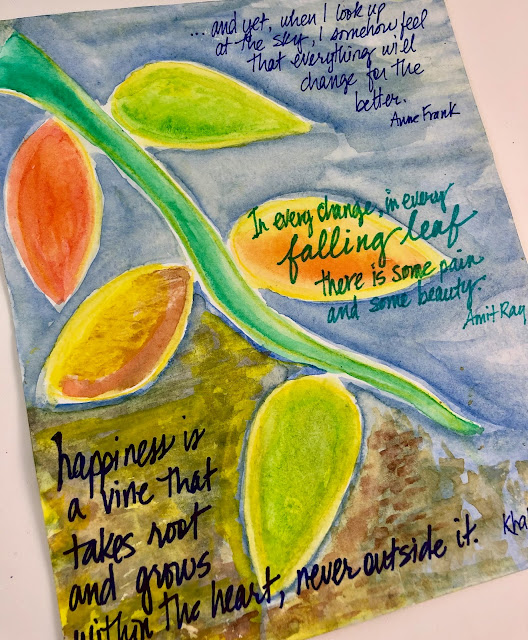 ... and yet, when I look up
at the sky, I somehow feel
that everything will
change for the
better.
Anne Frank
In every change, in every
falling leaf
there is some pain
and some beauty.
Amit Ray
happiness is
a vine that
takes root
and grows
within the heart, never outside it.